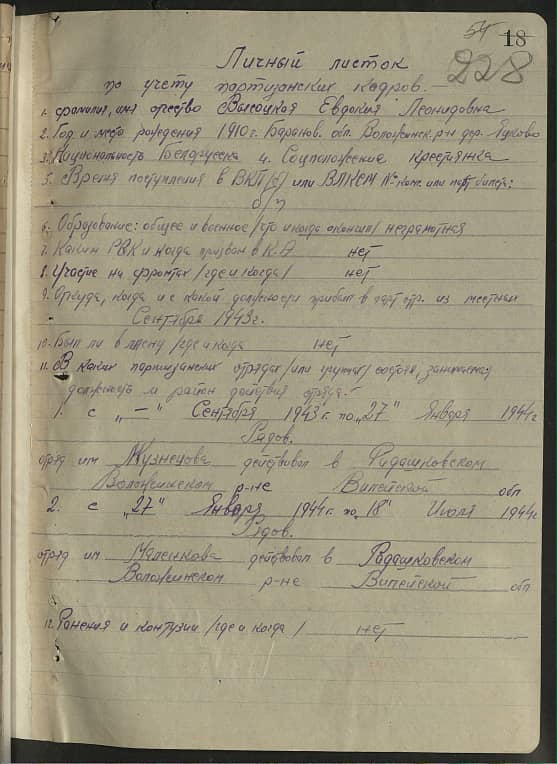 54 18
228
Личный листок
по учету партизанских кадров.—
1. Фамилия, имя отчество Высоцкая Евдокия Леонидовна
2. Год и место рождения 1910 г. Баранов. обл. Воложинск. р-н дер. Яцково
3. Национальность Белорусска 4. Соцположение крестьянка
5. Время поступления в ВКП(б) или ВЛКСМ № ком. или парт билета:
б/п
6. Образование: общее и военное /что и когда окончил/ неграмотная
7. Каким РВК и когда призван в К.А нет
8. Участие на фронтах /где и когда/ нет
9. Откуда, когда и с какой должности прибыл в парт. отр. из местных
Сентября 1943 г.
10. Был ли в плену /где и когда нет
11. В каких партизанских отрядах /или группах/ состоял, занимаемая
должность и район действия отряда.—
1. с „—" Сентября 1943 г. по „27" Января 1944 г
Рядов.
отряд им Кузнецова действовал в Радашковском
Воложинском р-не Вилейской обл
2. с „27" Января 1944 г. по „18" Июля 1944 г
Рядов.
отряд им Маленкова действовал в Радашковском
Воложинском р-не Вилейской обл
12. Ранения и контузии /где и когда/ нет